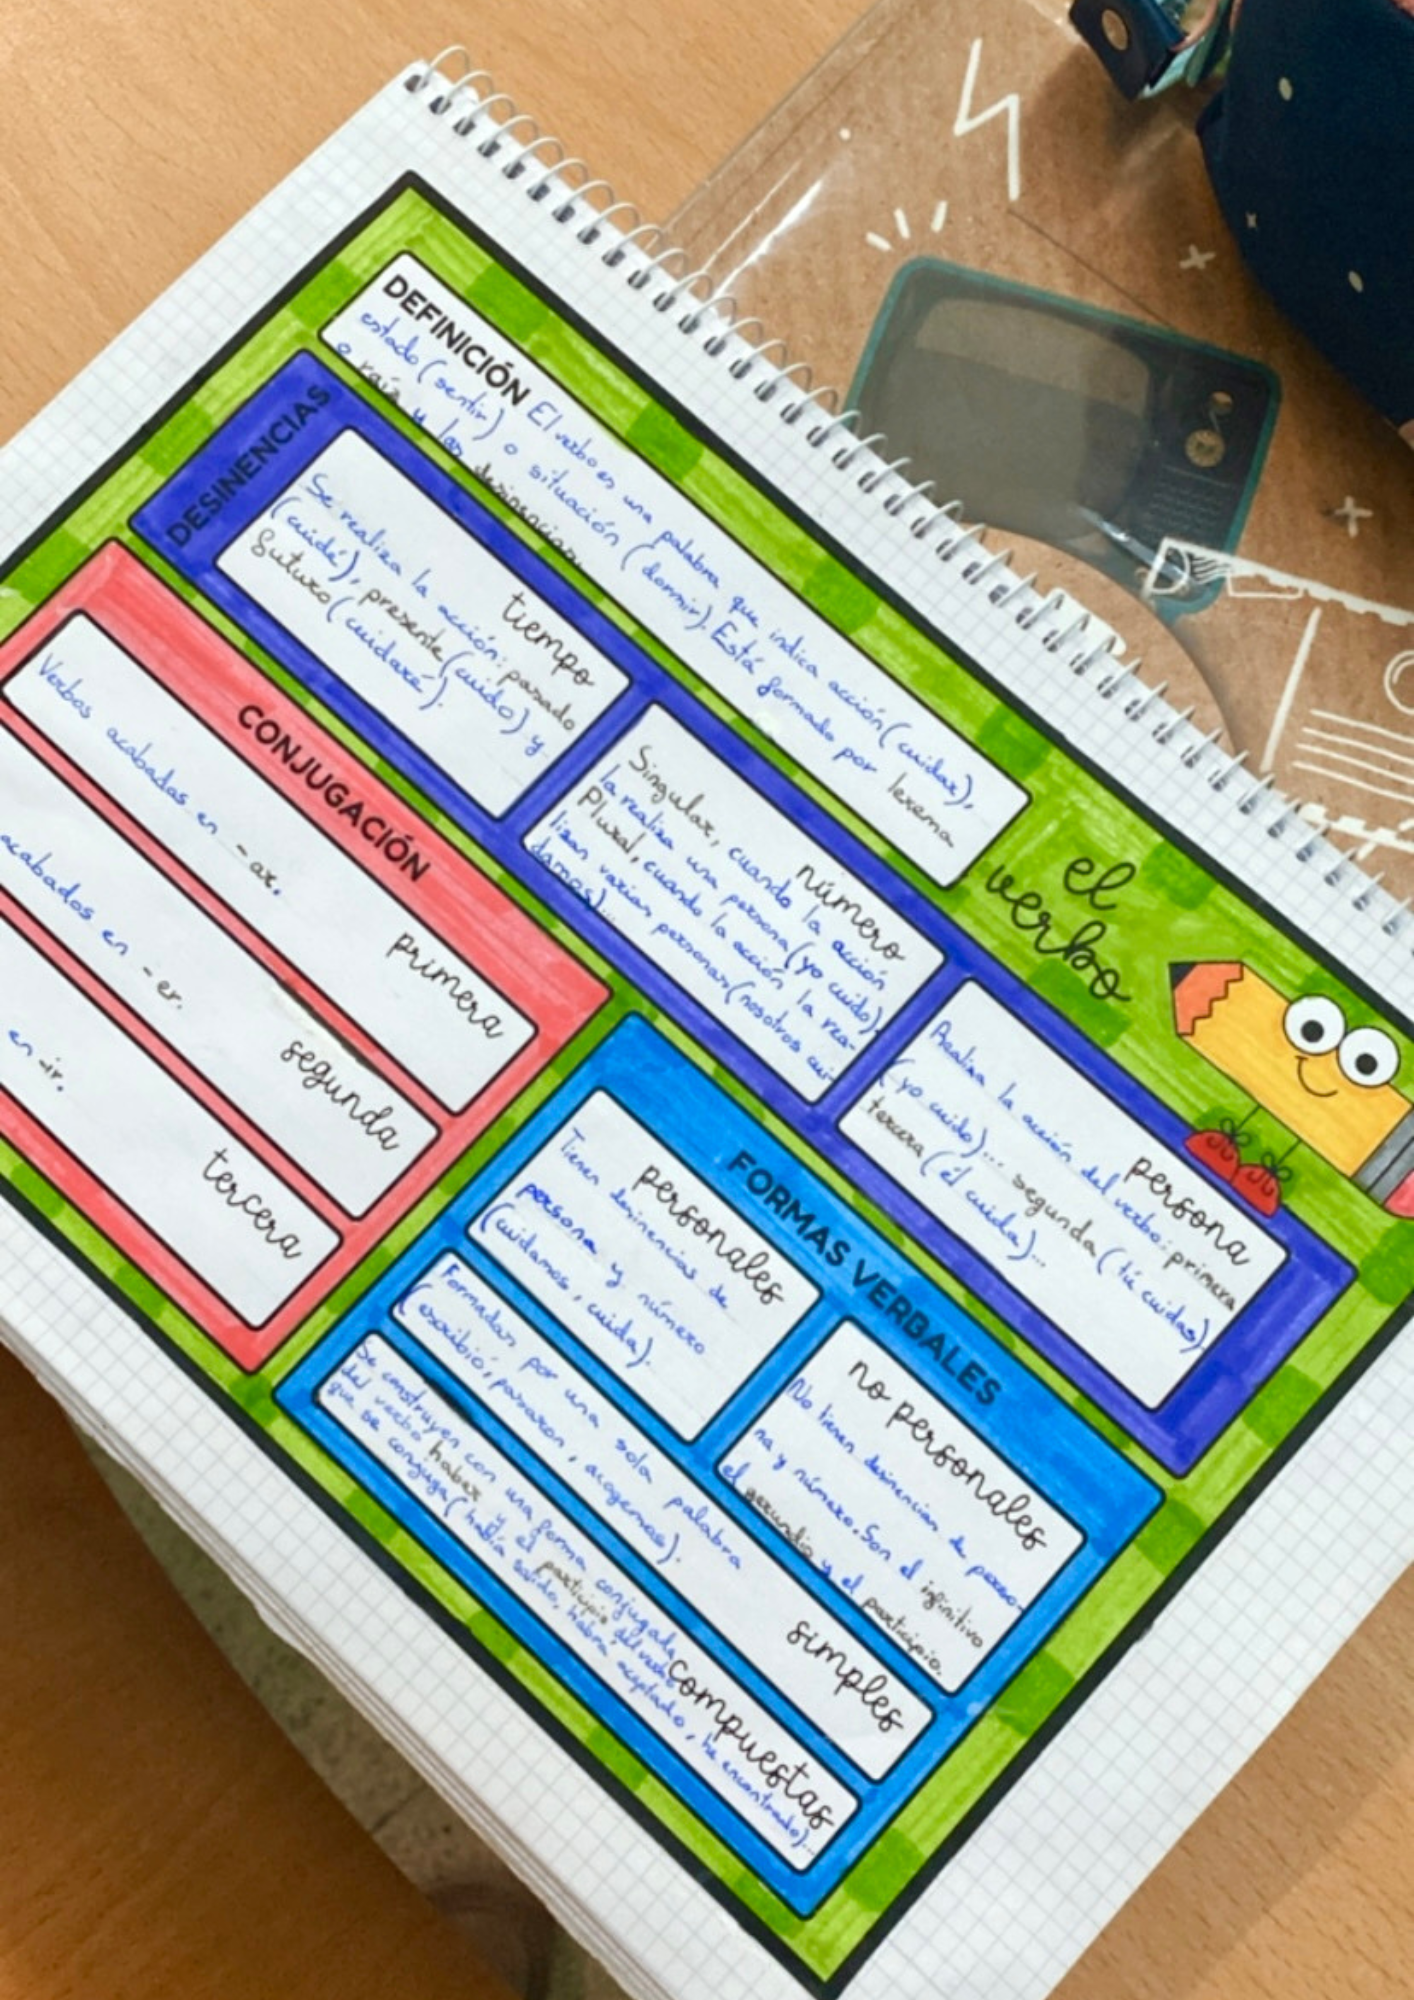 el
verbo
DEFINICIÓN El verbo es una palabra que indica acción (cuidar),
estado (sentir) o situación (dormir). Está formado por lexema
o raíz y las desinencias.
DESINENCIAS
tiempo
Se realiza la acción: pasado
(cuidé), presente (cuido) y
futuro (cuidaré).
número
Singular, cuando la acción
la realiza una persona (yo cuido).
Plural, cuando la acción la rea-
lizan varias personas (nosotros cui-
damos)...
persona
Realiza la acción del verbo: primera
(yo cuido)... segunda (tú cuidas),
tercera (él cuida)...
CONJUGACIÓN
primera
Verbos acabados en -ar.
segunda
acabados en -er.
tercera
en -ir.
FORMAS VERBALES
personales
Tienen desinencias de
persona y número
(cuidamos, cuida).
no personales
No tienen desinencias de perso-
na y número. Son el infinitivo
el gerundio y el participio.
simples
Formadas por una sola palabra
(escribió, pasaron, acogemos).
compuestas
Se construyen con una forma conjugada
del verbo haber y el participio del verbo
que se conjuga (había salido, habrá aceptado, he encontrado)...